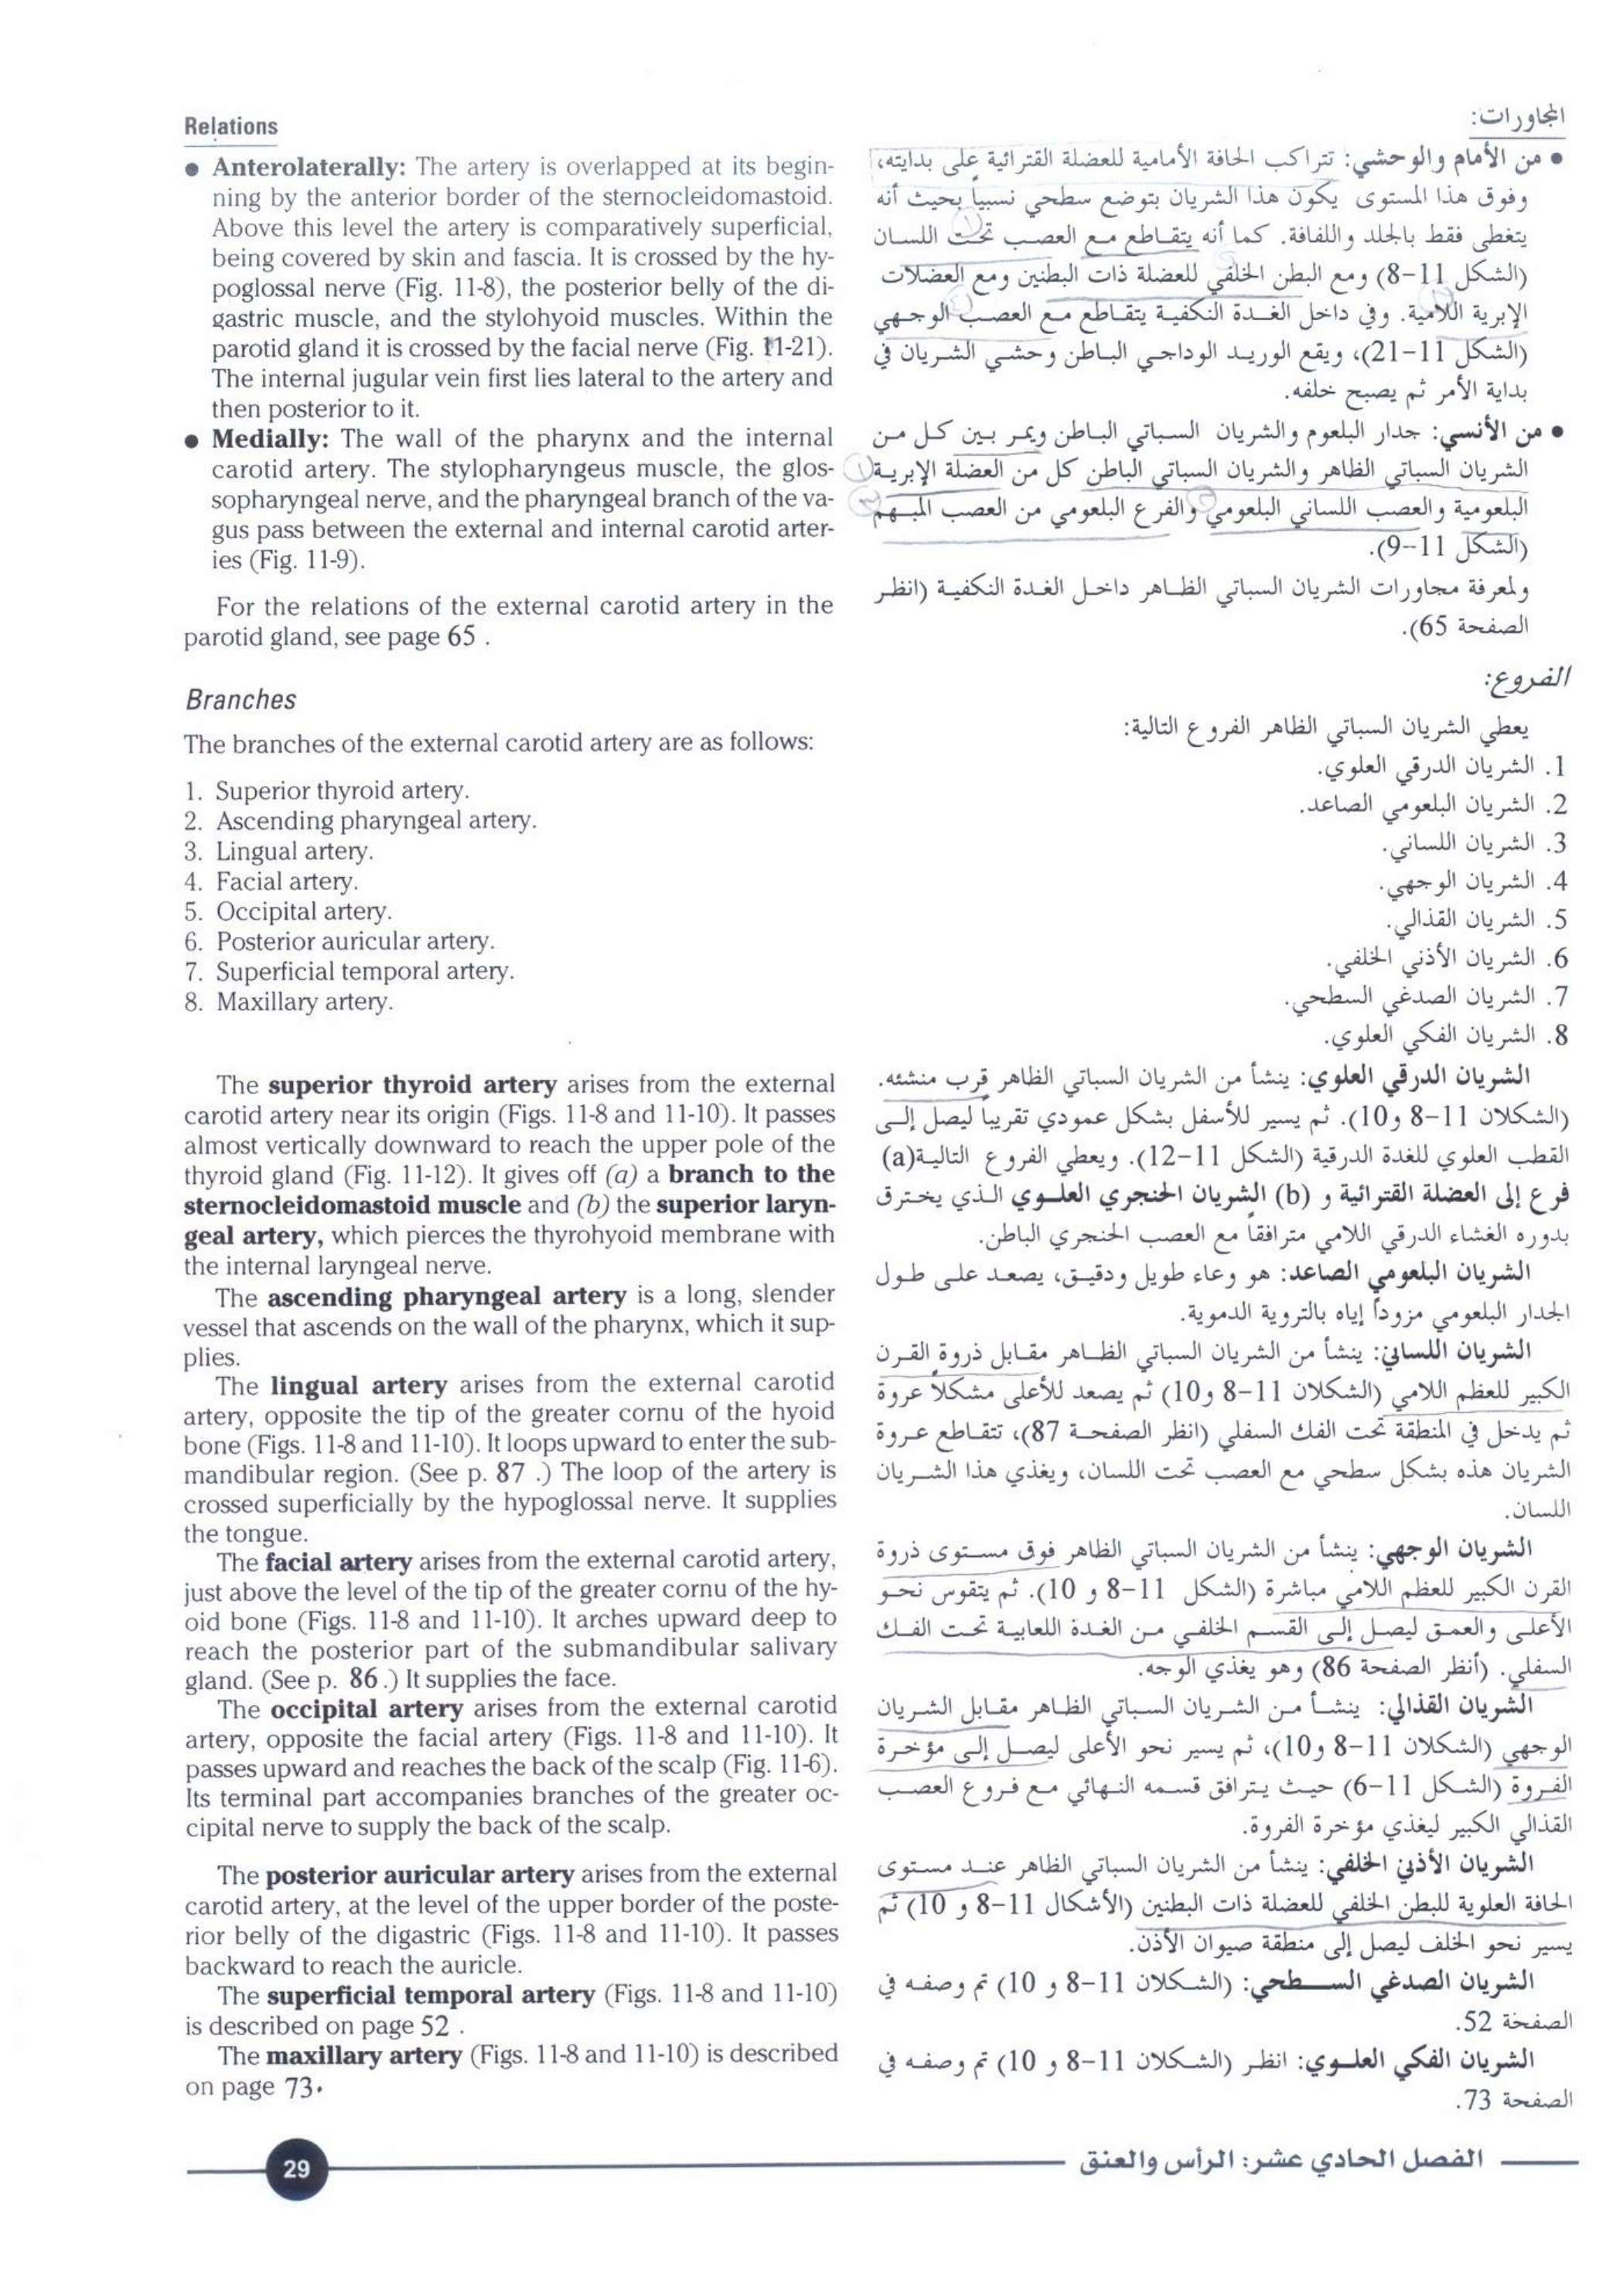 Relations
● Anterolaterally: The artery is overlapped at its begin-
ning by the anterior border of the sternocleidomastoid.
Above this level the artery is comparatively superficial,
being covered by skin and fascia. It is crossed by the hy-
poglossal nerve (Fig. 11-8), the posterior belly of the di-
gastric muscle, and the stylohyoid muscles. Within the
parotid gland it is crossed by the facial nerve (Fig. 11-21).
The internal jugular vein first lies lateral to the artery and
then posterior to it.
● Medially: The wall of the pharynx and the internal
carotid artery. The stylopharyngeus muscle, the glos-
sopharyngeal nerve, and the pharyngeal branch of the va-
gus pass between the external and internal carotid arter-
ies (Fig. 11-9).
For the relations of the external carotid artery in the
parotid gland, see page 65 .
Branches
The branches of the external carotid artery are as follows:
1. Superior thyroid artery.
2. Ascending pharyngeal artery.
3. Lingual artery.
4. Facial artery.
5. Occipital artery.
6. Posterior auricular artery.
7. Superficial temporal artery.
8. Maxillary artery.
The superior thyroid artery arises from the external
carotid artery near its origin (Figs. 11-8 and 11-10). It passes
almost vertically downward to reach the upper pole of the
thyroid gland (Fig. 11-12). It gives off (a) a branch to the
sternocleidomastoid muscle and (b) the superior laryn-
geal artery, which pierces the thyrohyoid membrane with
the internal laryngeal nerve.
The ascending pharyngeal artery is a long, slender
vessel that ascends on the wall of the pharynx, which it sup-
plies.
The lingual artery arises from the external carotid
artery, opposite the tip of the greater cornu of the hyoid
bone (Figs. 11-8 and 11-10). It loops upward to enter the sub-
mandibular region. (See p. 87 .) The loop of the artery is
crossed superficially by the hypoglossal nerve. It supplies
the tongue.
The facial artery arises from the external carotid artery,
just above the level of the tip of the greater cornu of the hy-
oid bone (Figs. 11-8 and 11-10). It arches upward deep to
reach the posterior part of the submandibular salivary
gland. (See p. 86 .) It supplies the face.
The occipital artery arises from the external carotid
artery, opposite the facial artery (Figs. 11-8 and 11-10). It
passes upward and reaches the back of the scalp (Fig. 11-6).
Its terminal part accompanies branches of the greater oc-
cipital nerve to supply the back of the scalp.
The posterior auricular artery arises from the external
carotid artery, at the level of the upper border of the poste-
rior belly of the digastric (Figs. 11-8 and 11-10). It passes
backward to reach the auricle.
The superficial temporal artery (Figs. 11-8 and 11-10)
is described on page 52 .
The maxillary artery (Figs. 11-8 and 11-10) is described
on page 73.
المجاورات:
● من الأمام والوحشي: تتراكب الحافة الأمامية للعضلة القترائية على بدايته،
وفوق هذا المستوى يكون هذا الشريان بتوضع سطحي نسبياً بحيث أنه
يتغطى فقط بالجلد واللفافة. كما أنه يتقاطع مع العصب تحت اللسان
(الشكل 11-8) ومع البطن الخلفي للعضلة ذات البطنين ومع العضلات
الإبرية اللامية. وفي داخل الغدة النكفية يتقاطع مع العصب الوجهي
(الشكل 11-21)، ويقع الوريد الوداجي الباطن وحشي الشريان في
بداية الأمر ثم يصبح خلفه.
● من الأنسي: جدار البلعوم والشريان السباتي الباطن ويمر بين كل من
الشريان السباتي الظاهر والشريان السباتي الباطن كل من العضلة الإبرية
البلعومية والعصب اللساني البلعومي والفرع البلعومي من العصب المبهم
(الشكل 11-9).
ولمعرفة مجاورات الشريان السباتي الظاهر داخل الغدة النكفية (انظر
الصفحة 65).
الفروع:
يعطي الشريان السباتي الظاهر الفروع التالية:
1. الشريان الدرقي العلوي.
2. الشريان البلعومي الصاعد.
3. الشريان اللساني.
4. الشريان الوجهي.
5. الشريان القذالي.
6. الشريان الأذني الخلفي.
7. الشريان الصدغي السطحي.
8. الشريان الفكي العلوي.
الشريان الدرقي العلوي: ينشأ من الشريان السباتي الظاهر قرب منشئه.
(الشكلان 11-8 و10). ثم يسير للأسفل بشكل عمودي تقريباً ليصل إلى
القطب العلوي للغدة الدرقية (الشكل 11-12). ويعطي الفروع التالية(a)
فرع إلى العضلة القترائية و (b) الشريان الحنجري العلوي الذي يخترق
بدوره الغشاء الدرقي اللامي مترافقاً مع العصب الحنجري الباطن.
الشريان البلعومي الصاعد: هو وعاء طويل ودقيق، يصعد على طول
الجدار البلعومي مزوداً إياه بالتروية الدموية.
الشريان اللساني: ينشأ من الشريان السباتي الظاهر مقابل ذروة القرن
الكبير للعظم اللامي (الشكلان 11-8 و10) ثم يصعد للأعلى مشكلاً عروة
ثم يدخل في المنطقة تحت الفك السفلي (انظر الصفحة 87)، تتقاطع عروة
الشريان هذه بشكل سطحي مع العصب تحت اللسان، ويغذي هذا الشريان
اللسان.
الشريان الوجهي: ينشأ من الشريان السباتي الظاهر فوق مستوى ذروة
القرن الكبير للعظم اللامي مباشرة (الشكل 11-8 و 10). ثم يتقوس نحو
الأعلى والعمق ليصل إلى القسم الخلفي من الغدة اللعابية تحت الفك
السفلي. (أنظر الصفحة 86) وهو يغذي الوجه.
الشريان القذالي: ينشأ من الشريان السباتي الظاهر مقابل الشريان
الوجهي (الشكلان 11-8 و10)، ثم يسير نحو الأعلى ليصل إلى مؤخرة
الفروة (الشكل 11-6) حيث يترافق قسمه النهائي مع فروع العصب
القذالي الكبير ليغذي مؤخرة الفروة.
الشريان الأذني الخلفي: ينشأ من الشريان السباتي الظاهر عند مستوى
الحافة العلوية للبطن الخلفي للعضلة ذات البطنين (الأشكال 11-8 و 10) ثم
يسير نحو الخلف ليصل إلى منطقة صيوان الأذن.
الشريان الصدغي السطحي: (الشكلان 11-8 و 10) تم وصفه في
الصفحة 52.
الشريان الفكي العلوي: انظر (الشكلان 11-8 و 10) تم وصفه في
الصفحة 73.
29
الفصل الحادي عشر: الرأس والعنق